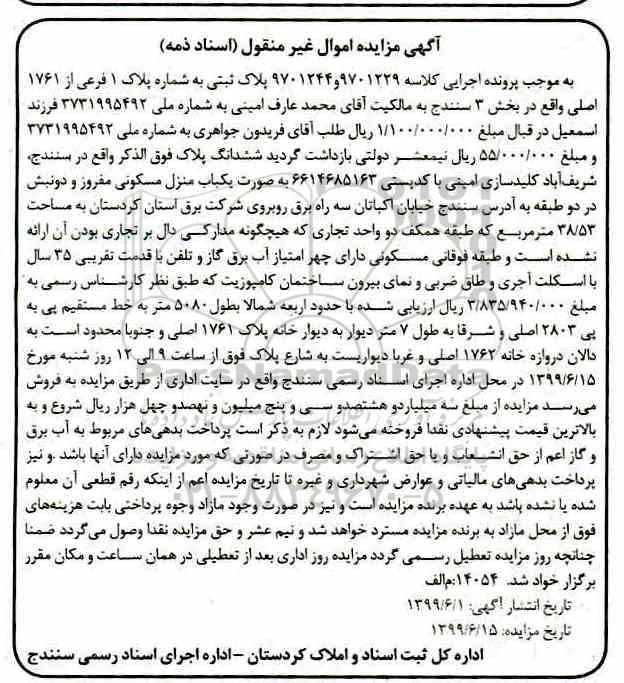 آگهی مزایده اموال غیر منقول (اسناد ذمه)
به موجب پرونده اجرایی کلاسه ۹۷۰۱۲۲۹و۹۷۰۱۲۴۴ پلاک ثبتی به شماره پلاک ۱ فرعی از ۱۷۶۱
اصلی واقع در بخش ۳ سنندج به مالکیت آقای محمد عارف امینی به شماره ملی ۳۷۳۱۹۹۵۴۹۲ فرزند
اسمعیل در قبال مبلغ ۱/۱۰۰/۰۰۰/۰۰۰ ریال طلب آقای فریدون جواهری به شماره ملی ۳۷۳۱۹۹۵۴۹۲
و مبلغ ۵۵/۰۰۰/۰۰۰ ریال نیمعشر دولتی بازداشت گردید ششدانگ پلاک فوق الذکر واقع در سنندج،
شریف‌آباد کلیدسازی امینی با کدپستی ۶۶۱۴۶۸۵۱۶۳ به صورت یکباب منزل مسکونی مفروز و دونبش
در دو طبقه به آدرس سنندج خیابان اکباتان سه راه برق روبروی شرکت برق استان کردستان به مساحت
۳۸/۵۳ مترمربع که طبقه همکف دو واحد تجاری که هیچگونه مدارکی دال بر تجاری بودن آن ارائه
نشده است و طبقه فوقانی مسکونی دارای چهر امتیاز آب برق گاز و تلفن با قدمت تقریبی ۳۵ سال
با اسکلت آجری و طاق ضربی و نمای بیرون ساختمان کامپوزیت که طبق نظر کارشناس رسمی به
مبلغ ۳/۸۳۵/۹۴۰/۰۰۰ ریال ارزیابی شده با حدود اربعه شمالا بطول ۵۰۸۰ متر به خط مستقیم پی به
پی ۲۸۰۳ اصلی و شرقا به طول ۷ متر دیوار به دیوار خانه پلاک ۱۷۶۱ اصلی و جنوبا محدود است به
دالان دروازه خانه ۱۷۶۲ اصلی و غربا دیواریست به شارع پلاک فوق از ساعت ۹ الی ۱۲ روز شنبه مورخ
۱۳۹۹/۶/۱۵ در محل اداره اجرای اسناد رسمی سنندج واقع در سایت اداری از طریق مزایده به فروش
می‌رسد مزایده از مبلغ سه میلیاردو هشتصدو سی و پنج میلیون و نهصدو چهل هزار ریال شروع و به
بالاترین قیمت پیشنهادی نقدا فروخته می‌شود لازم به ذکر است پرداخت بدهی‌های مربوط به آب برق
و گاز اعم از حق انشعاب و یا حق اشتراک و مصرف در صورتی که مورد مزایده دارای آنها باشد .و نیز
پرداخت بدهی‌های مالیاتی و عوارض شهرداری و غیره تا تاریخ مزایده اعم از اینکه رقم قطعی آن معلوم
شده یا نشده باشد به عهده برنده مزایده است و نیز در صورت وجود مازاد وجوه پرداختی بابت هزینه‌های
فوق از محل مازاد به برنده مزایده مسترد خواهد شد و نیم عشر و حق مزایده نقدا وصول می‌گردد ضمنا
چنانچه روز مزایده تعطیل رسمی گردد مزایده روز اداری بعد از تعطیلی در همان ساعت و مکان مقرر
برگزار خواد شد. ۱۴۰۵۴:م‌الف
تاریخ انتشار آگهی: ۱۳۹۹/۶/۱
تاریخ مزایده: ۱۳۹۹/۶/۱۵
اداره کل ثبت اسناد و املاک کردستان –اداره اجرای اسناد رسمی سنندج
ParsNamadData
۰۲۱-۸۸۳۴۹۶۷۰-۵